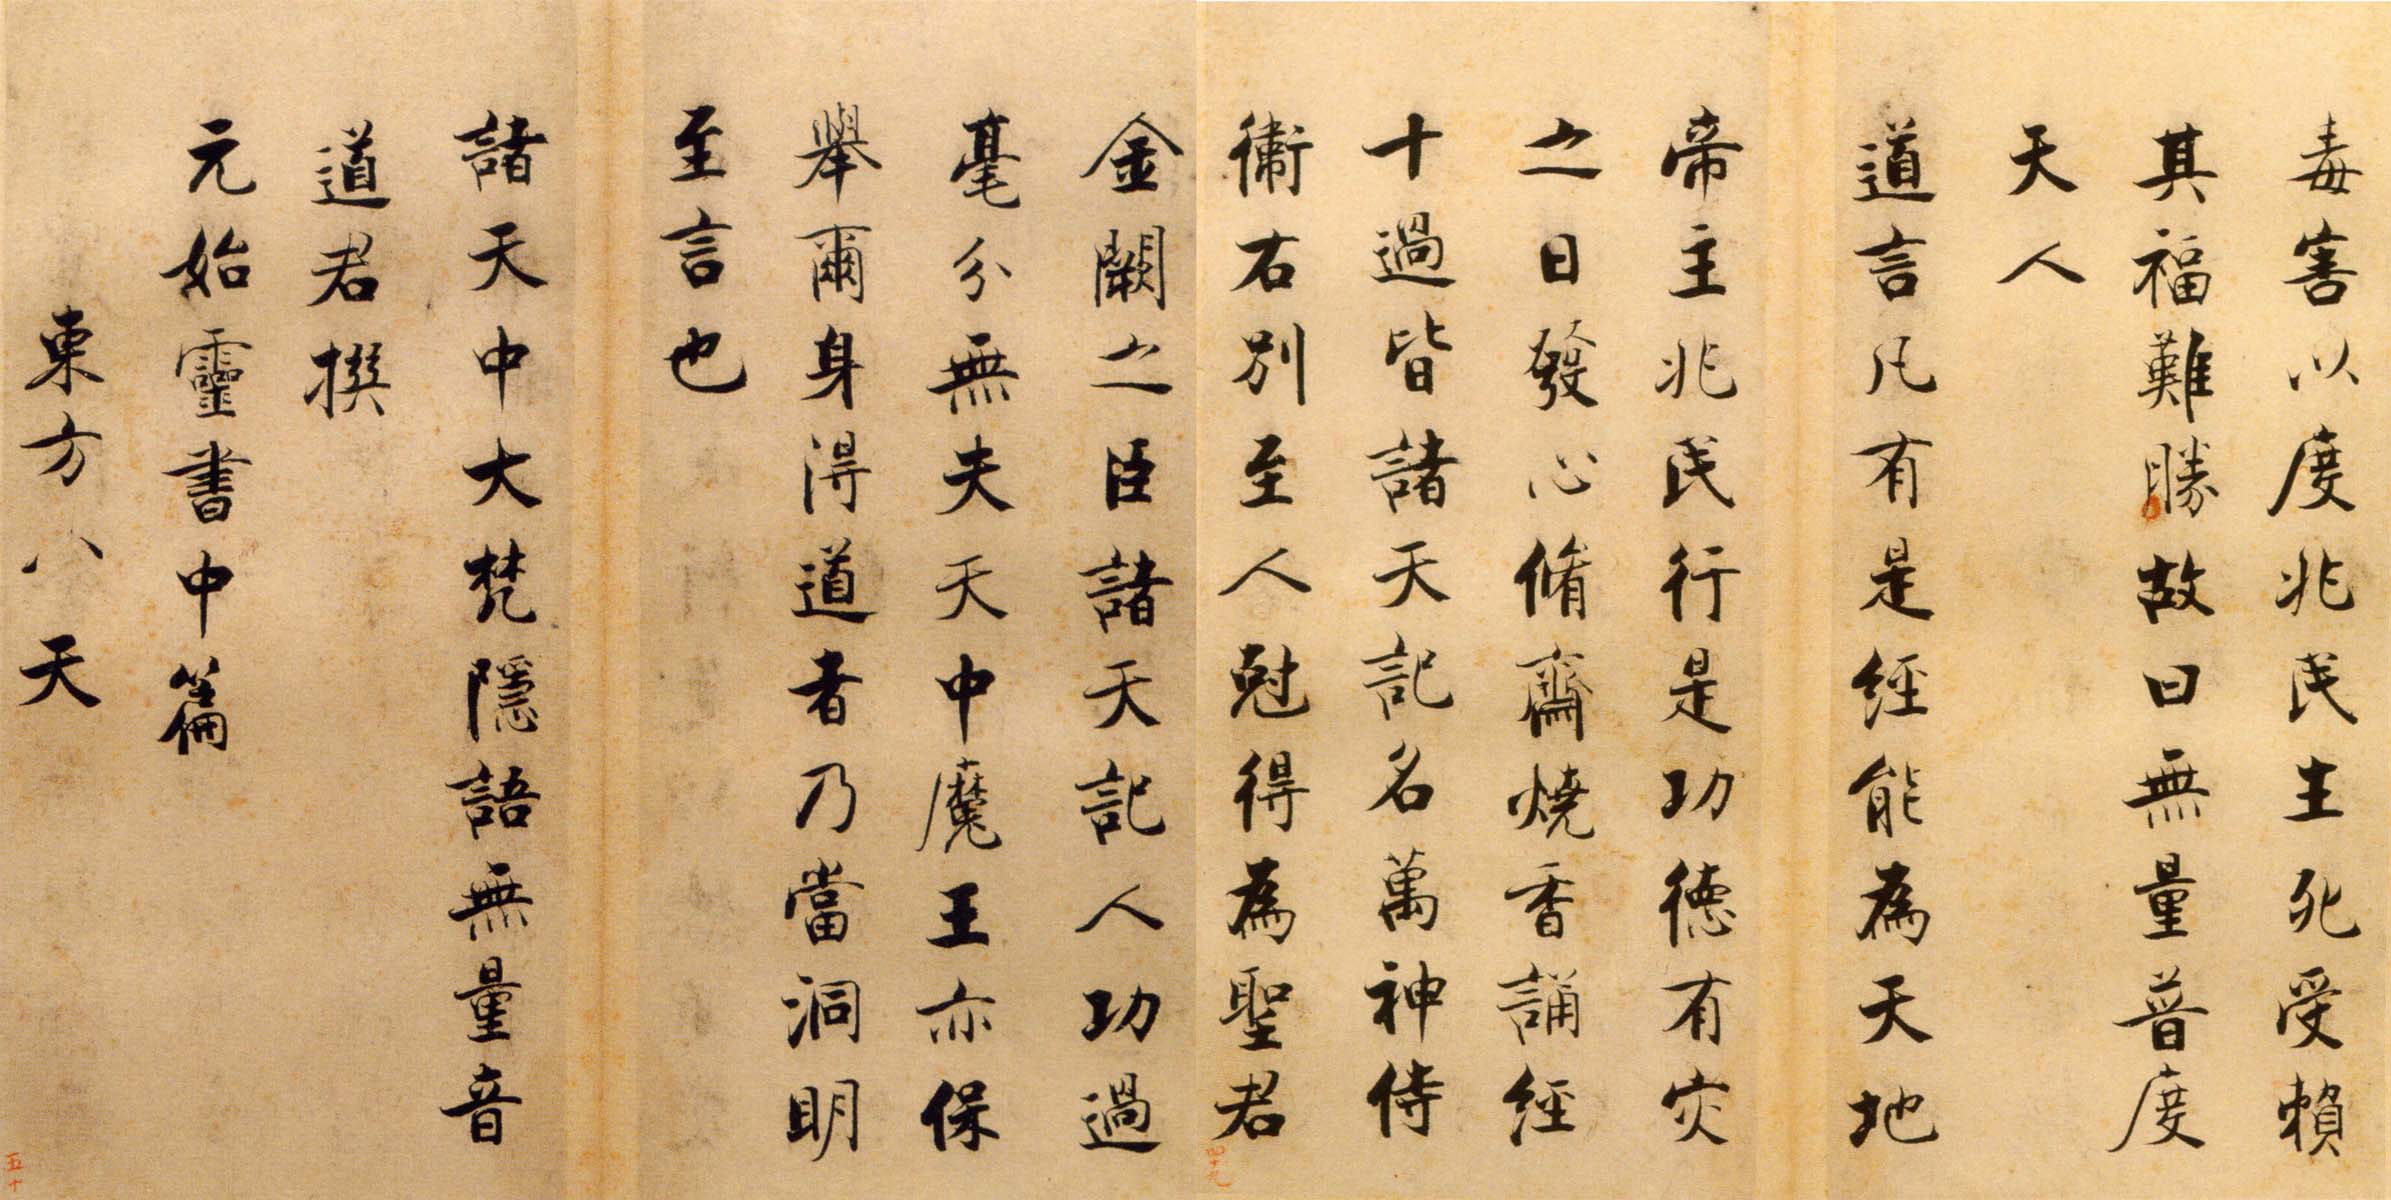 毒害以度兆民生死受賴
其福難勝故曰無量普度
天人
道言凡有是經能為天地
帝主兆民行是功德有灾
之日發心脩齋燒香誦經
十過皆諸天記名萬神侍
衛右別至人尅得為聖君
金闕之臣諸天記人功過
毫分無失天中魔王亦保
舉爾身得道者乃當洞明
至言也
諸天中大梵隱語無量音
道君撰
元始靈書中篇
東方八天
四十九
五十